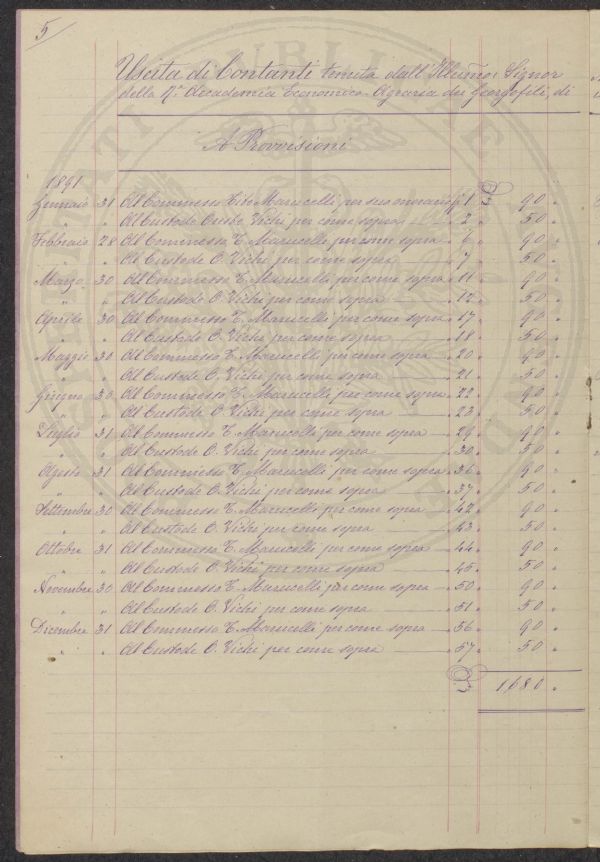 5
Uscita di Contanti tenuta dall' Illmo: Signor
della Rª. Accademia Economico-Agraria dei Georgofili, di
A Provvisioni
1891
Gennaio 31 Al Commesso Tito Marucelli per suo onorario 1 90 "
" " Al Custode Oreste Vichi per come sopra 2 50 "
Febbraio 28 Al Commesso T. Marucelli per come sopra 6 90 "
" " Al Custode O. Vichi per come sopra 7 50 "
Marzo 30 Al Commesso T. Marucelli per come sopra 11 90 "
" " Al Custode O. Vichi per come sopra 12 50 "
Aprile 30 Al Commesso T. Marucelli per come sopra 17 90 "
" " Al Custode O. Vichi per come sopra 18 50 "
Maggio 31 Al Commesso T. Marucelli per come sopra 20 90 "
" " Al Custode O. Vichi per come sopra 21 50 "
Giugno 30 Al Commesso T. Marucelli per come sopra 22 90 "
" " Al Custode O. Vichi per come sopra 23 50 "
Luglio 31 Al Commesso T. Marucelli per come sopra 29 90 "
" " Al Custode O. Vichi per come sopra 30 50 "
Agosto 31 Al Commesso T. Marucelli per come sopra 36 90 "
" " Al Custode O. Vichi per come sopra 37 50 "
Settembre 30 Al Commesso T. Marucelli per come sopra 42 90 "
" " Al Custode O. Vichi per come sopra 43 50 "
Ottobre 31 Al Commesso T. Marucelli per come sopra 44 90 "
" " Al Custode O. Vichi per come sopra 45 50 "
Novembre 30 Al Commesso T. Marucelli per come sopra 50 90 "
" " Al Custode O. Vichi per come sopra 51 50 "
Dicembre 31 Al Commesso T. Marucelli per come sopra 56 90 "
" " Al Custode O. Vichi per come sopra 57 50 "
1,680 "